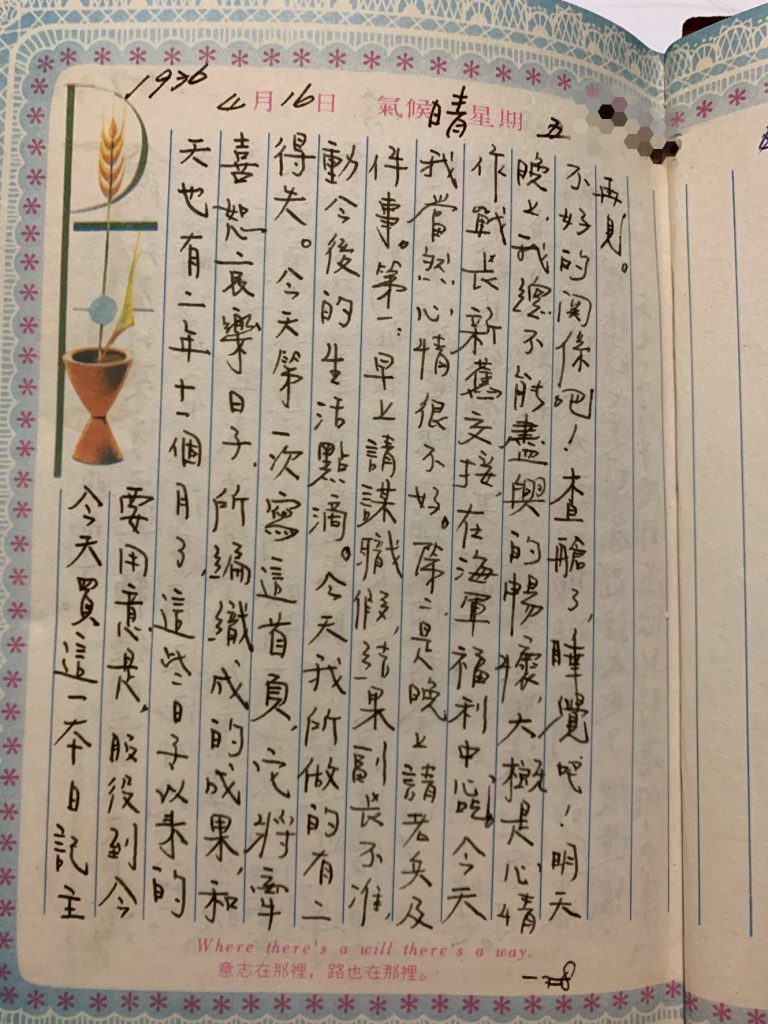 1936
4月16日 氣候晴 星期五
今天買這一本日記主
要用意是,服役到今
天也有二年十一個月了,這些日子以來的
喜恕哀樂日子,所編織成的成果,和
得失。今天第一次寫這首頁,它將牽
動今後的生活點滴。今天我所做的有二
件事。第一:早上請謀職假,結果副長不准,
我當然心情很不好。第二是晚上請老兵及
作戰長新舊交接,在海軍福利中心。今天
晚上,我總不能盡興的暢懷,大概是心情
不好的関係吧!查艙了,睡覺吧!明天
再見。
Where there's a will there's a way.
意志在那裡,路也在那裡。